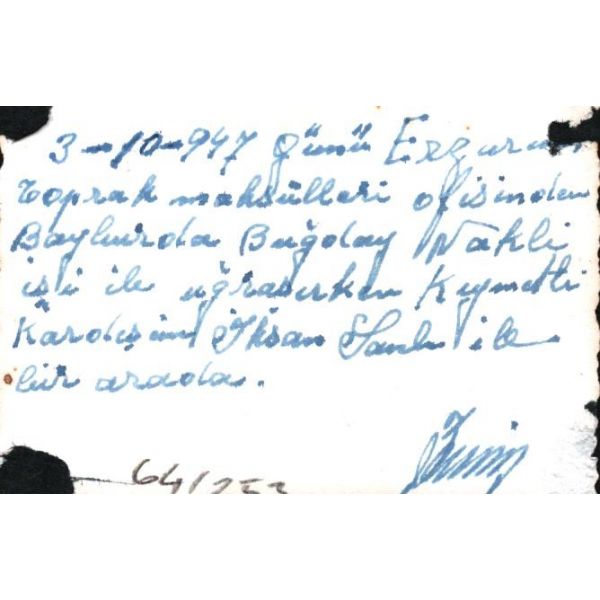 3-10-947 günü Erzurum
toprak mahsülleri ofisinden
Bayburda Buğday Nakli
işi ile uğraşırken Kıymetli
Kardeşim İhsan ile
bir arada.
64/253